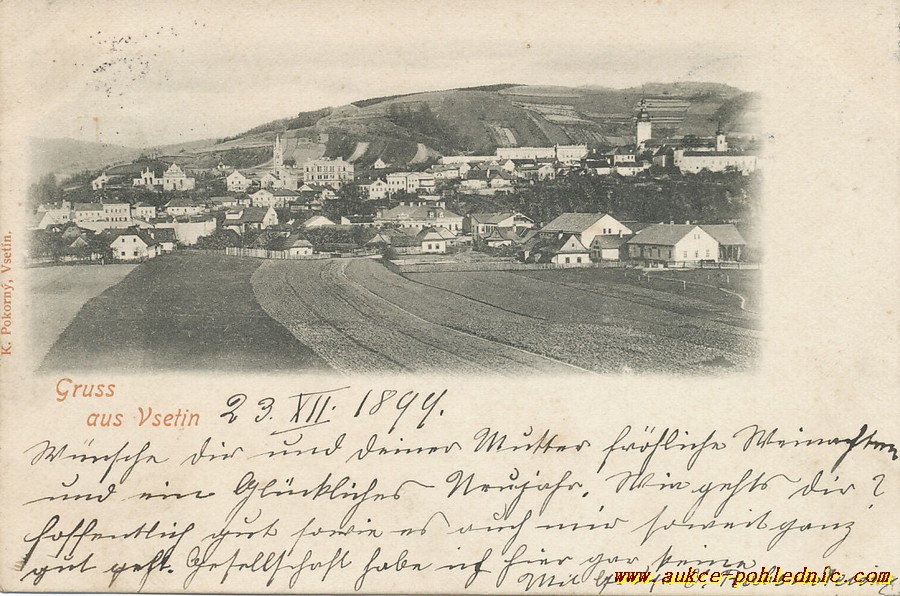 K. Pokorný, Vsetín.
Gruss
aus Vsetin
23. XII. 1899.
Wünsche dir und deiner Mutter fröhliche Weinachten
und ein Glückliches Neujahr. Wie gehts dir?
hoffentlich gut sowie es auch mir soweit ganz
gut geht. Gesellschaft habe ich hier gar keine
Mit
www.aukce-pohlednic.com